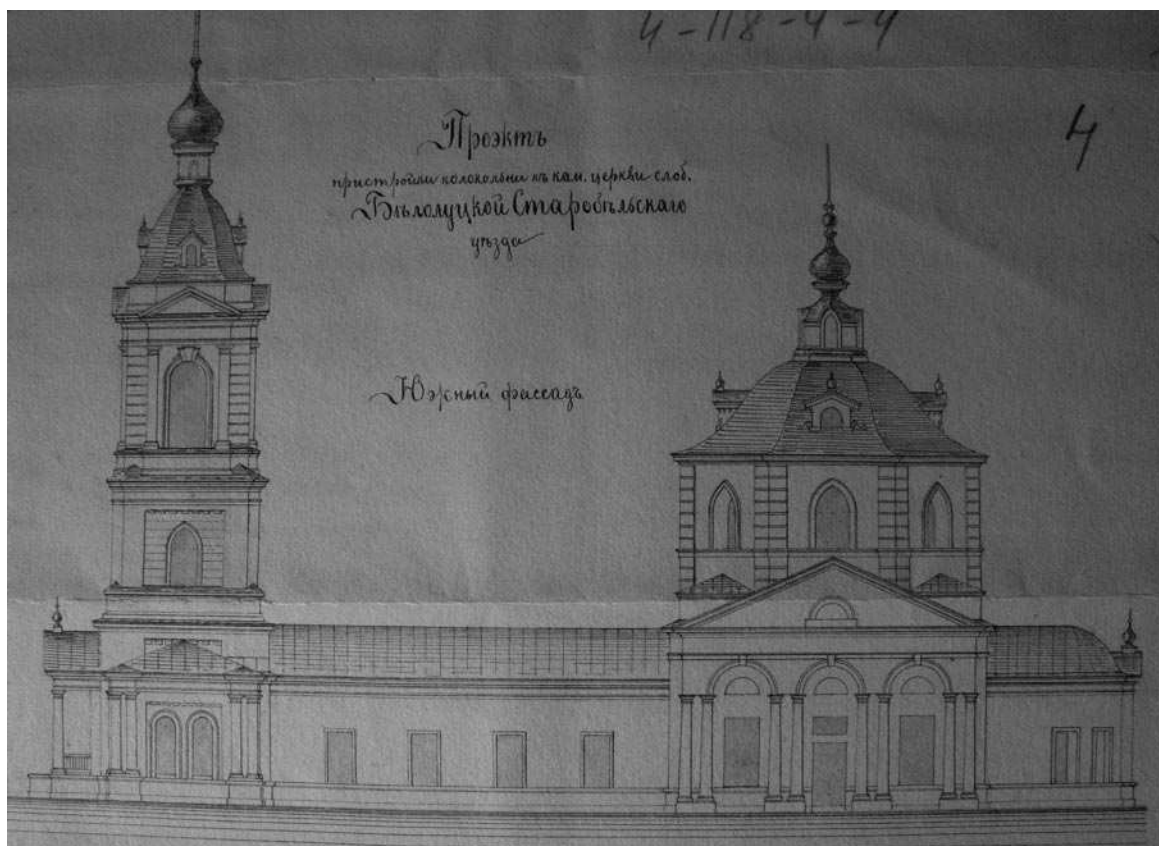 4-118-4-4
4
Проэктъ
пристройки колокольни къ кам. церкви слоб.
Бѣлолуцкой Старобѣльскаго
уѣзда
Южный фассадъ